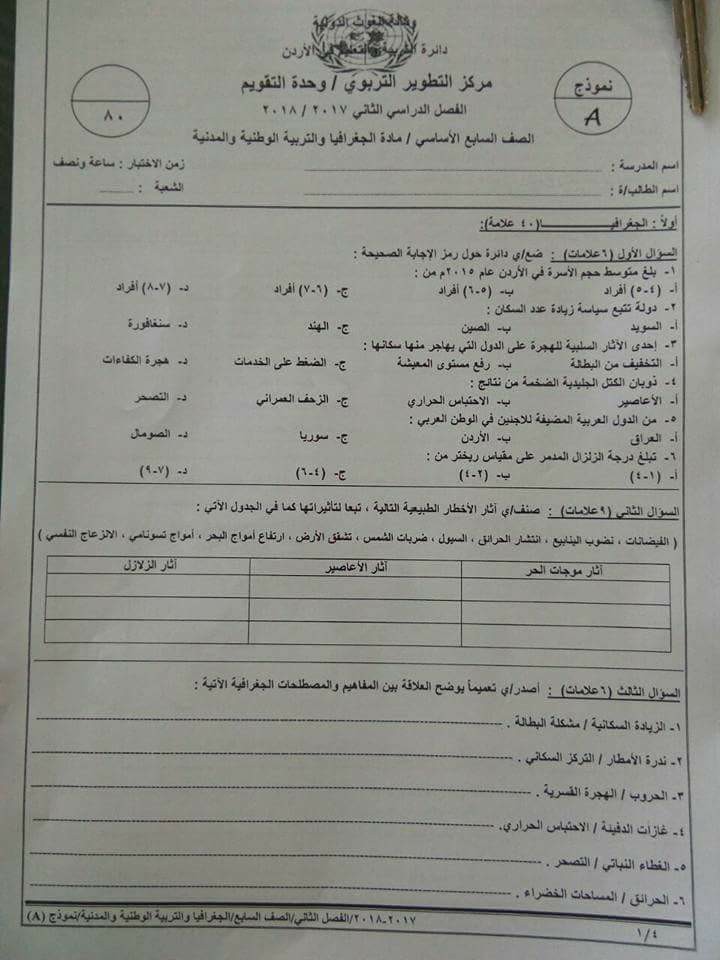 وكالة الغوث الدولية
دائرة التربية والتعليم في الأردن
مركز التطوير التربوي / وحدة التقويم
نموذج
A
٨٠
الفصل الدراسي الثاني ٢٠١٧ / ٢٠١٨
الصف السابع الأساسي / مادة الجغرافيا والتربية الوطنية والمدنية
اسم المدرسة : زمن الاختبار : ساعة ونصف
اسم الطالب/ة : الشعبة :
أولاً : الجغرافيـــــــا (٤٠ علامة):
السؤال الأول (٦ علامات) : ضع/ي دائرة حول رمز الإجابة الصحيحة :
١- بلغ متوسط حجم الأسرة في الأردن عام ٢٠١٥م من :
أ- (٤-٥) أفراد ب- (٥-٦) أفراد ج- (٦-٧) أفراد د- (٧-٨) أفراد
٢- دولة تتبع سياسة زيادة عدد السكان :
أ- السويد ب- الصين ج- الهند د- سنغافورة
٣- إحدى الآثار السلبية للهجرة على الدول التي يهاجر منها سكانها :
أ- التخفيف من البطالة ب- رفع مستوى المعيشة ج- الضغط على الخدمات د- هجرة الكفاءات
٤- ذوبان الكتل الجليدية الضخمة من نتائج :
أ- الأعاصير ب- الاحتباس الحراري ج- الزحف العمراني د- التصحر
٥- من الدول العربية المضيفة للاجئين في الوطن العربي :
أ- العراق ب- الأردن ج- سوريا د- الصومال
٦- تبلغ درجة الزلزال المدمر على مقياس ريختر من :
أ- (١-٤) ب- (٢-٤) ج- (٤-٦) د- (٧-٩)
السؤال الثاني (٩ علامات) : صنف/ي آثار الأخطار الطبيعية التالية ، تبعا لتأثيراتها كما في الجدول الآتي :
( الفيضانات ، نضوب الينابيع ، انتشار الحرائق ، السيول ، ضربات الشمس ، تشقق الأرض ، ارتفاع أمواج البحر ، أمواج تسونامي ، الانزعاج النفسي )
آثار موجات الحر آثار الأعاصير آثار الزلازل
السؤال الثالث (٦ علامات) : أصدر/ي تعميماً يوضح العلاقة بين المفاهيم والمصطلحات الجغرافية الآتية :
١- الزيادة السكانية / مشكلة البطالة .
٢- ندرة الأمطار / التركز السكاني .
٣- الحروب / الهجرة القسرية .
٤- غازات الدفيئة / الاحتباس الحراري.
٥- الغطاء النباتي / التصحر .
٦- الحرائق / المساحات الخضراء .
٢٠١٧-٢٠١٨/الفصل الثاني/الصف السابع/الجغرافيا والتربية الوطنية والمدنية/نموذج (A)
١/٤